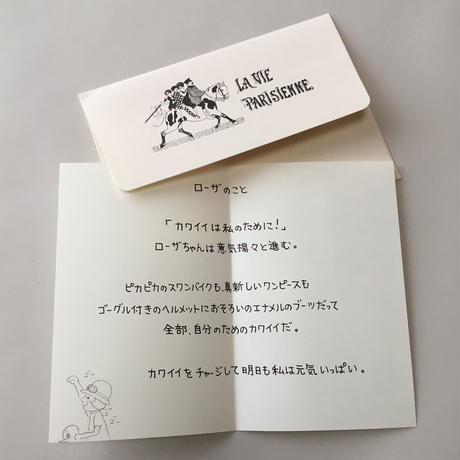 LA VIE
PARISIENNE.
ローザのこと
「カワイイは私のために！」
ローザちゃんは意気揚々と進む。
ピカピカのスワンバイクも、真新しいワンピースも
ゴーグル付きのヘルメットにおそろいのエナメルのブーツだって
全部、自分のためのカワイイだ。
カワイイをチャージして明日も私は元気いっぱい。
ゴー
ゴー